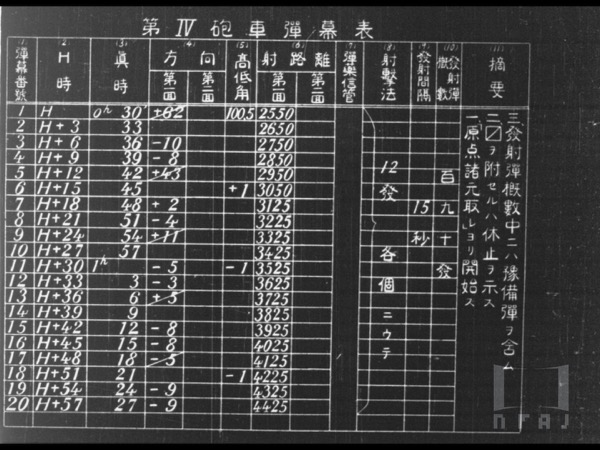 第Ⅳ砲車彈幕表
(1) 彈幕番號 (2) H時 (3) 眞時 (4) 方向 第一面 第二面 (5) 高低角 (6) 射路離 第一面 第二面 (7) 彈藥信管 (8) 射擊法 (9) 發射間隔 (10) 發射彈概數 (11) 摘要
1 H 0h 30' +62 100,5 2550
2 H+3 33 2650
3 H+6 36 -10 2750
4 H+9 39 -8 2850
5 H+12 42 +43 2950
6 H+15 45 +1 3050
7 H+18 48 +2 3125
8 H+21 51 -4 3225
9 H+24 54 +11 3325
10 H+27 57 3425
11 H+30 1h -5 -1 3525
12 H+33 3 -3 3625
13 H+36 6 +5 3725
14 H+39 9 3825
15 H+42 12 -8 3925
16 H+45 15 -8 4025
17 H+48 18 -5 4125
18 H+51 21 -1 4225
19 H+54 24 -9 4325
20 H+57 27 -9 4425
12發各個ニウテ
15秒
百九十發
一、原点諸元取レヨリ開始ス
二、〼ヲ附セルハ休止ヲ示ス
三、發射彈概數中ニハ豫備彈ヲ含ム
NFAJ